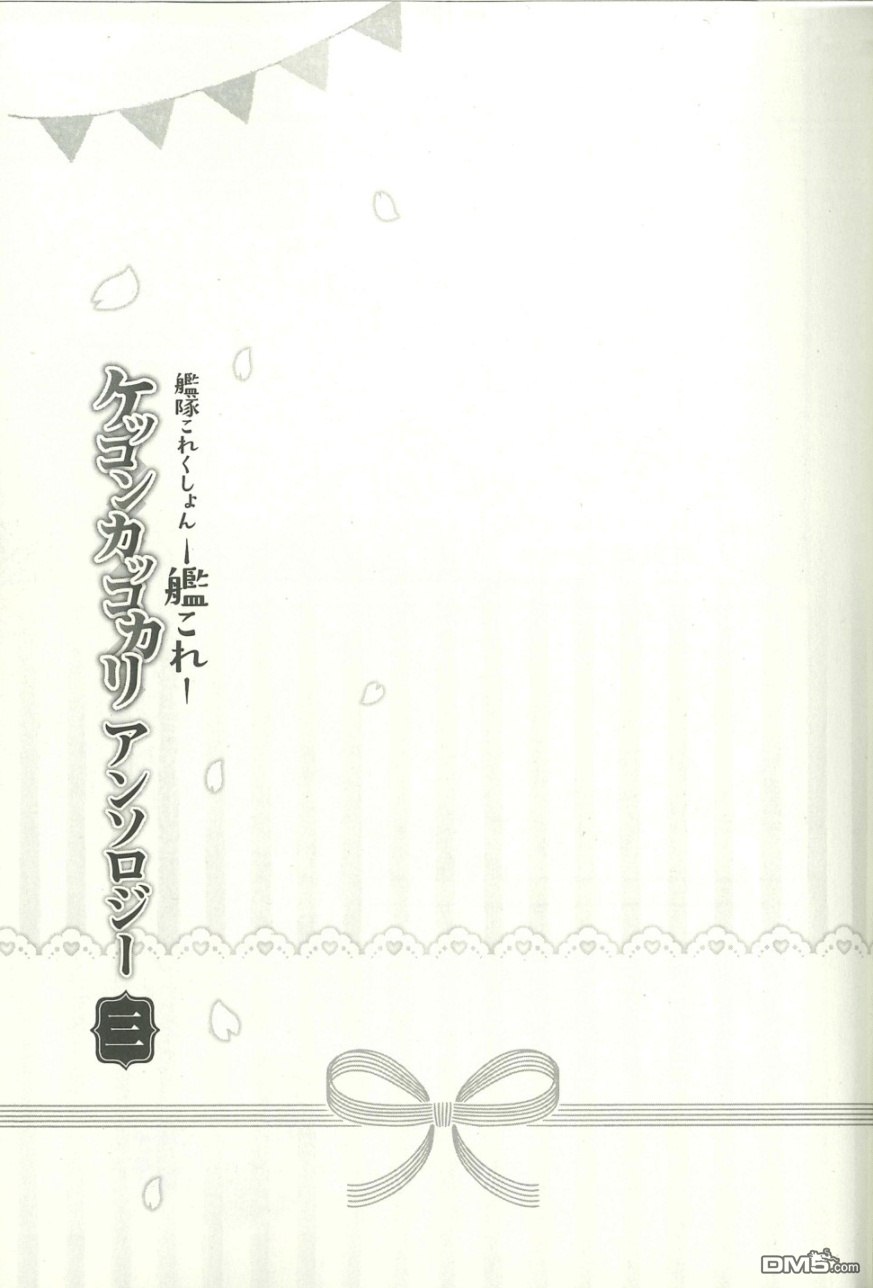 艦隊これくしょん ー艦これー
ケッコンカッコカリ アンソロジー 三
DM5.com